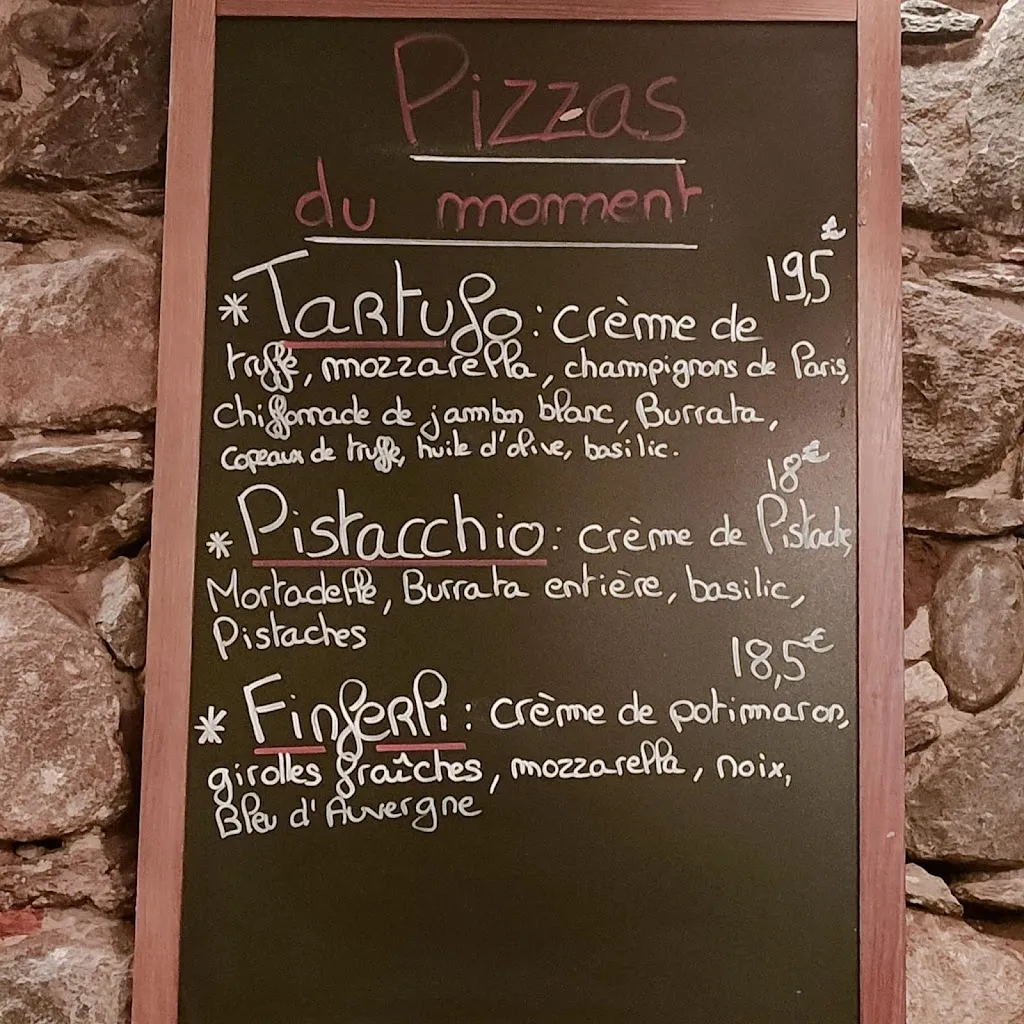 Pizzas
du moment
19,5€
* Tartufo : crème de
truffe, mozzarella, champignons de Paris,
chiffonnade de jambon blanc, Burrata,
copeaux de truffe, huile d'olive, basilic.
18€
* Pistacchio : crème de Pistache,
Mortadelle, Burrata entière, basilic,
Pistaches
18,5€
* Finferli : crème de potimaron,
girolles fraîches, mozzarella, noix,
Bleu d'Auvergne